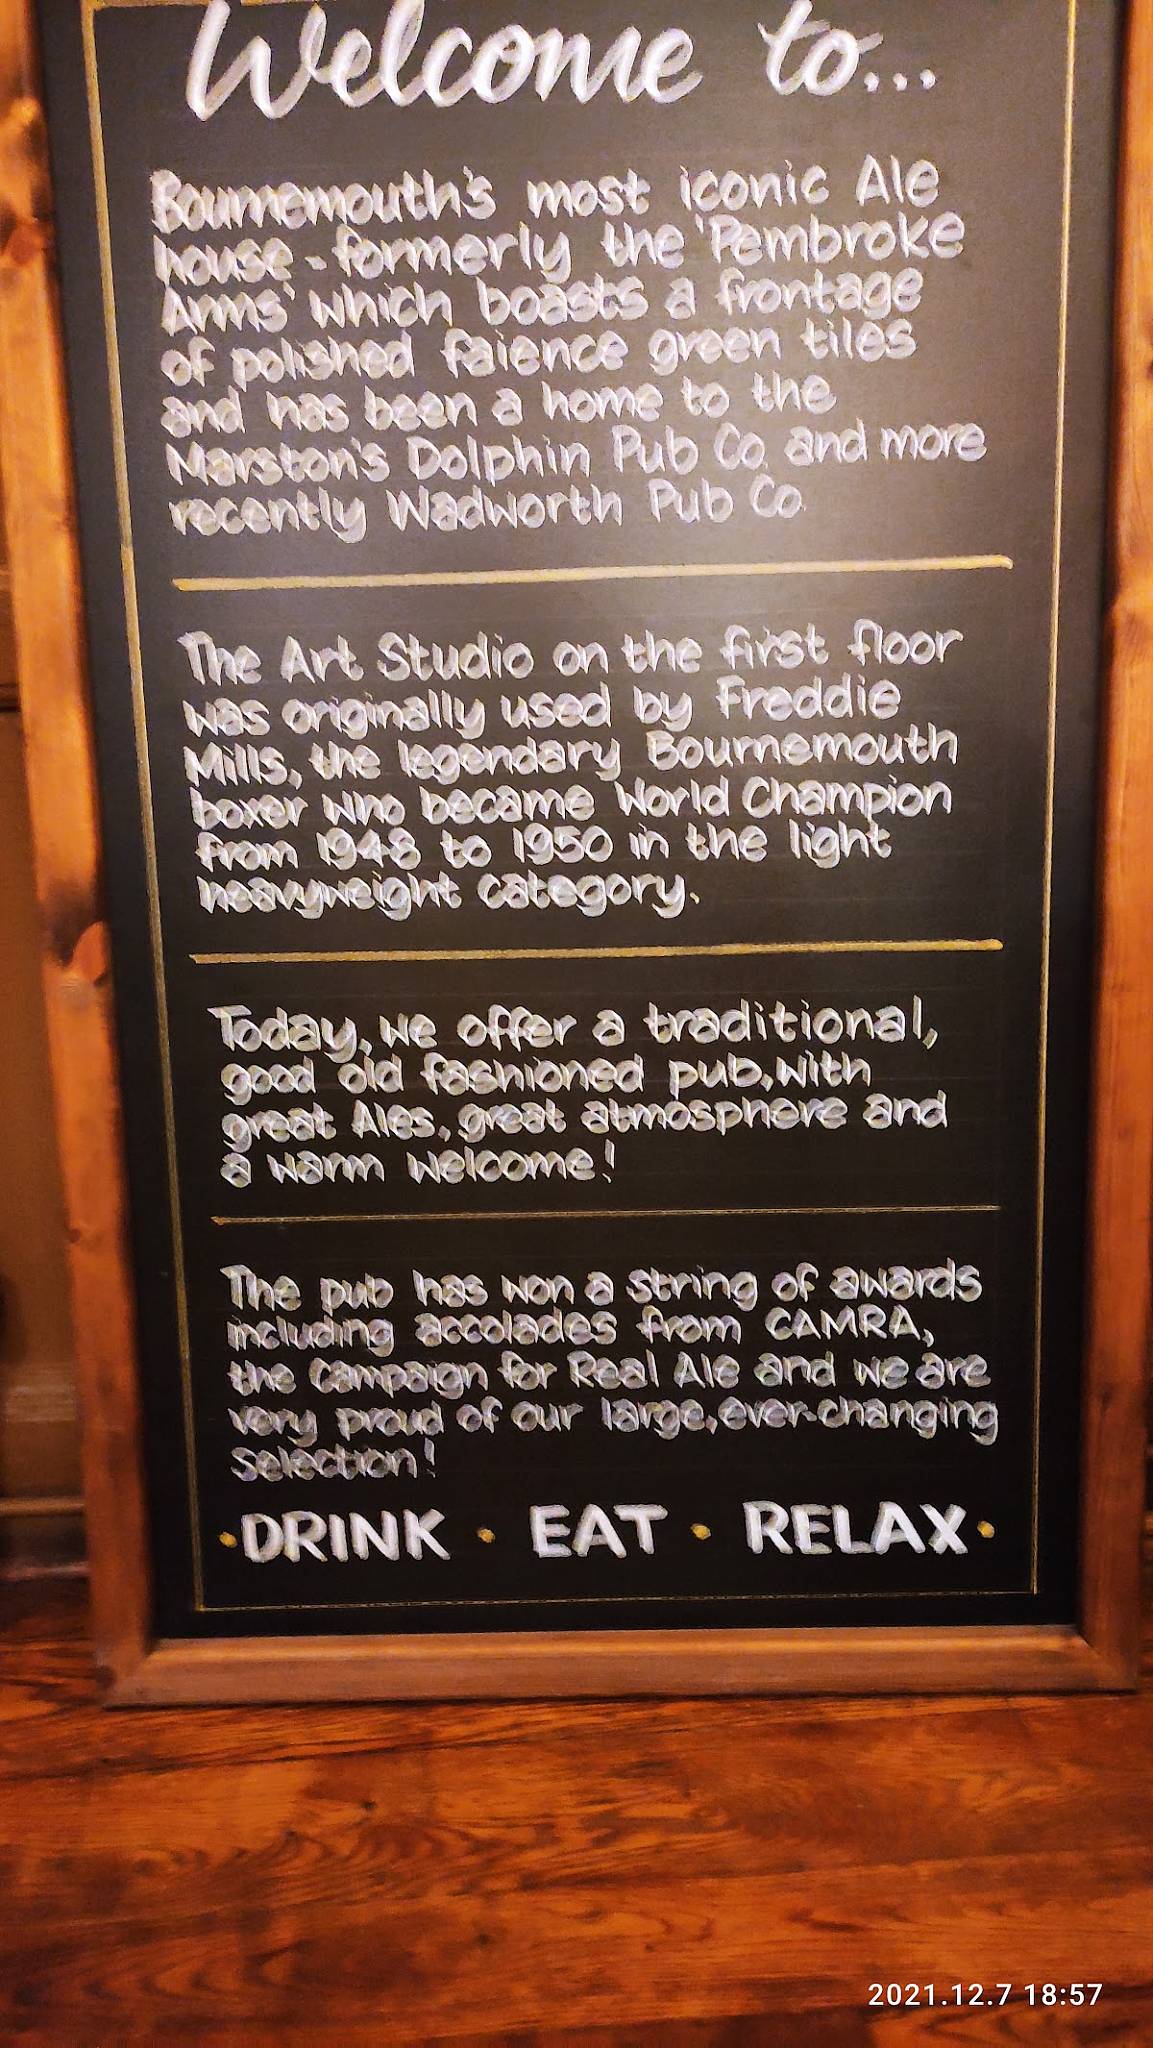 Welcome to...
Bournemouth's most iconic Ale
house - formerly the 'Pembroke
Arms' which boasts a frontage
of polished faience green tiles
and has been a home to the
Marston's Dolphin Pub Co. and more
recently Wadworth Pub Co.
The Art Studio on the first floor
was originally used by Freddie
Mills, the legendary Bournemouth
boxer who became World Champion
from 1948 to 1950 in the light
heavyweight category.
Today, we offer a traditional,
good old fashioned pub, with
great Ales, great atmosphere and
a warm welcome!
The pub has won a string of awards
including accolades from CAMRA,
the Campaign for Real Ale and we are
very proud of our large, ever-changing
selection!
• DRINK • EAT • RELAX •
2021.12.7 18:57